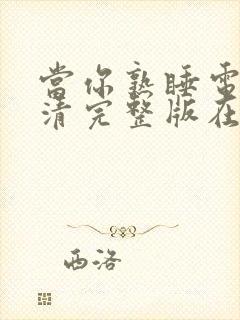 當你熟睡電
清完整版在
西洛